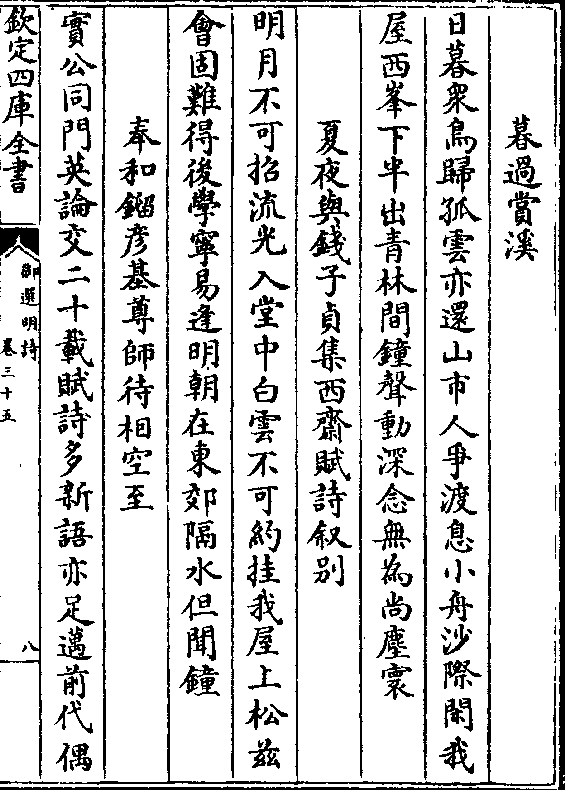 暮過賞溪
日暮衆鳥歸孤雲亦還山市人爭渡息小舟沙際閑我
屋西峯下半出青林間鐘聲動深念無為尚塵寰
夏夜與錢子貞集西齋賦詩叙别
明月不可招流光入堂中白雲不可約挂我屋上松兹
會固難得後學寧易逢明朝在東郊隔水但聞鐘
奉和鎦彦基尊師待相空至
實公同門英論交二十載賦詩多新語亦足邁前代偶
欽定四庫全書
御選明詩
卷三十五
八